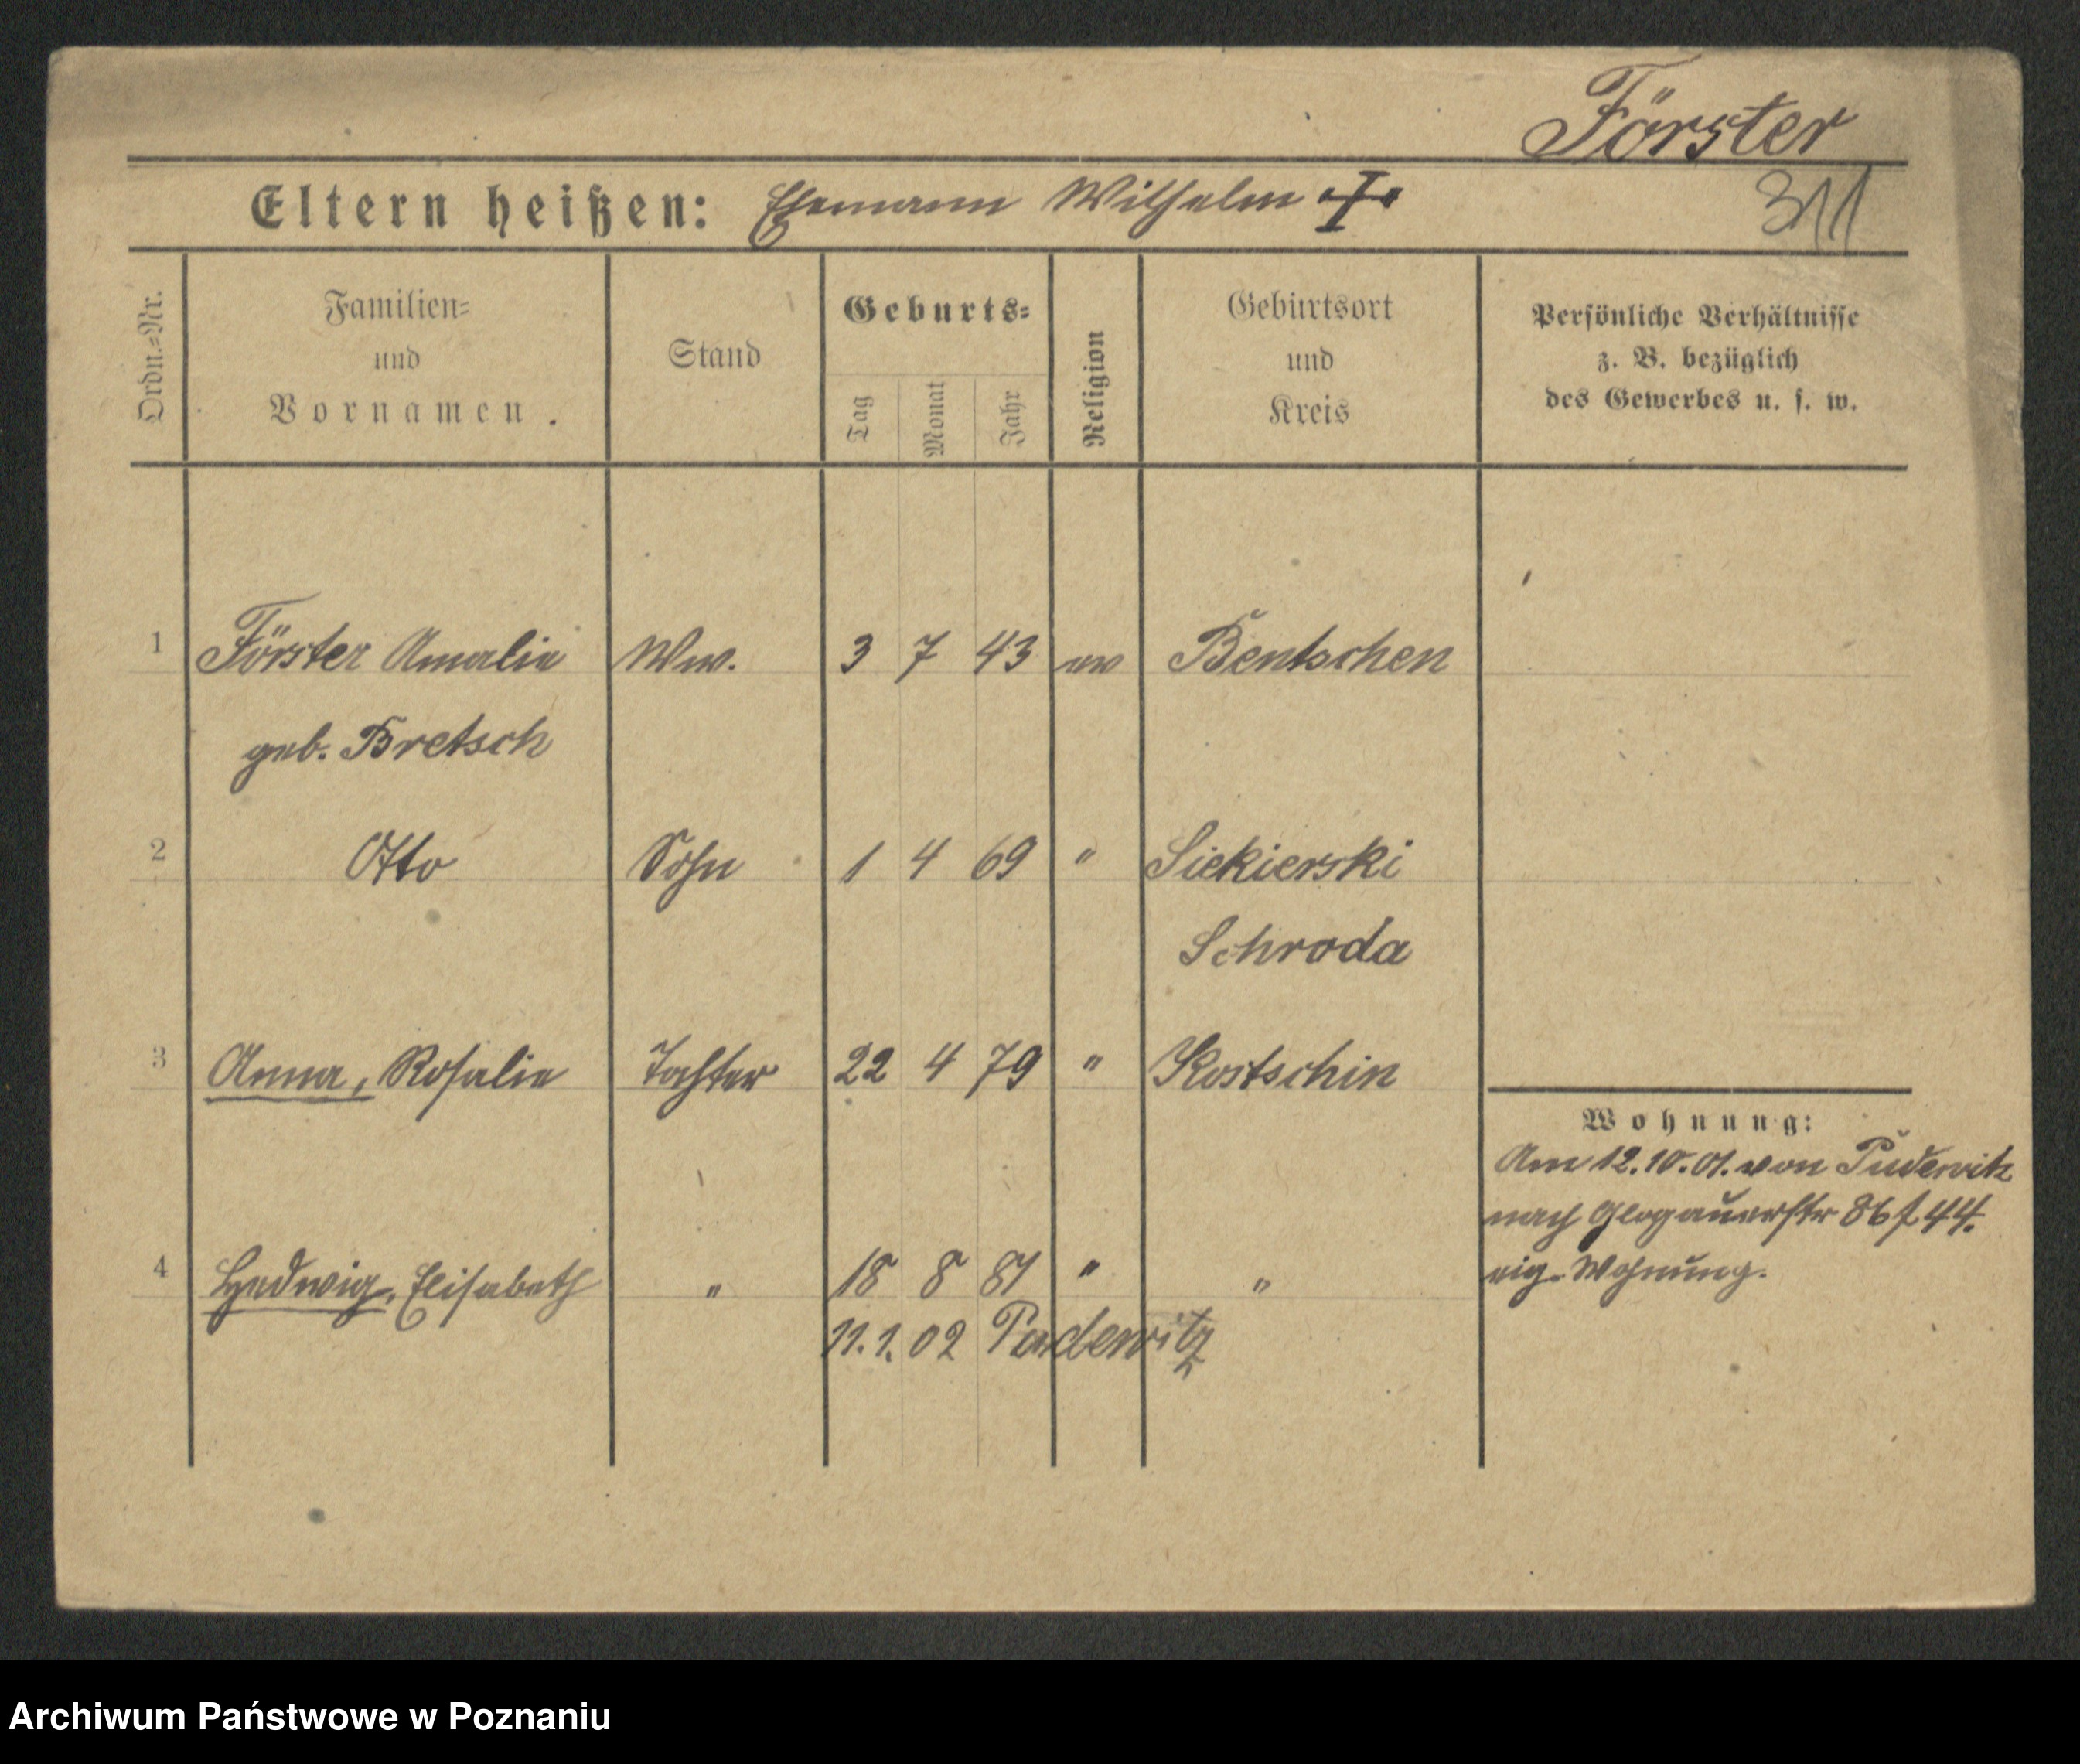 Förster
Eltern heißen: Ehemann Wilhelm +
311
Ordn.-Nr.
Familien- und Vornamen.
Stand
Geburts-
Tag Monat Jahr
Religion
Geburtsort und Kreis
Persönliche Verhältnisse
z. B. bezüglich
des Gewerbes u. s. w.
1 Förster Amalie Ww. 3 7 43 ev Bentschen
geb. Bretsch
2 Otto Sohn 1 4 69 " Siekierski
Schroda
3 Anna, Rosalie Tochter 22 4 79 " Kostschin
Wohnung:
Am 12.10.01. von Pudewitz
nach Glogauerstr 86 f 44.
eig. Wohnung.
4 Hedwig, Elisabeth " 18 8 81 " "
11.1.02 Pudewitz
Archiwum Państwowe w Poznaniu